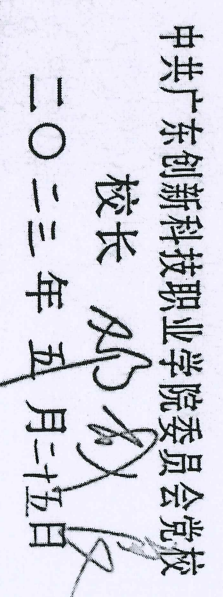 中共广东创新科技职业学院委员会党校
校长 邓
二〇二三年五月二十五日